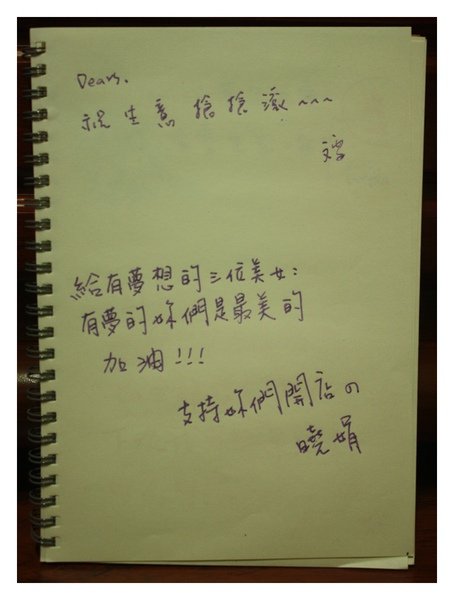 Dears,
祝生意搶搶滾~~~
給有夢想的三位美女:
有夢的妳們是最美的
加油!!!
支持妳們開店の
曉娟